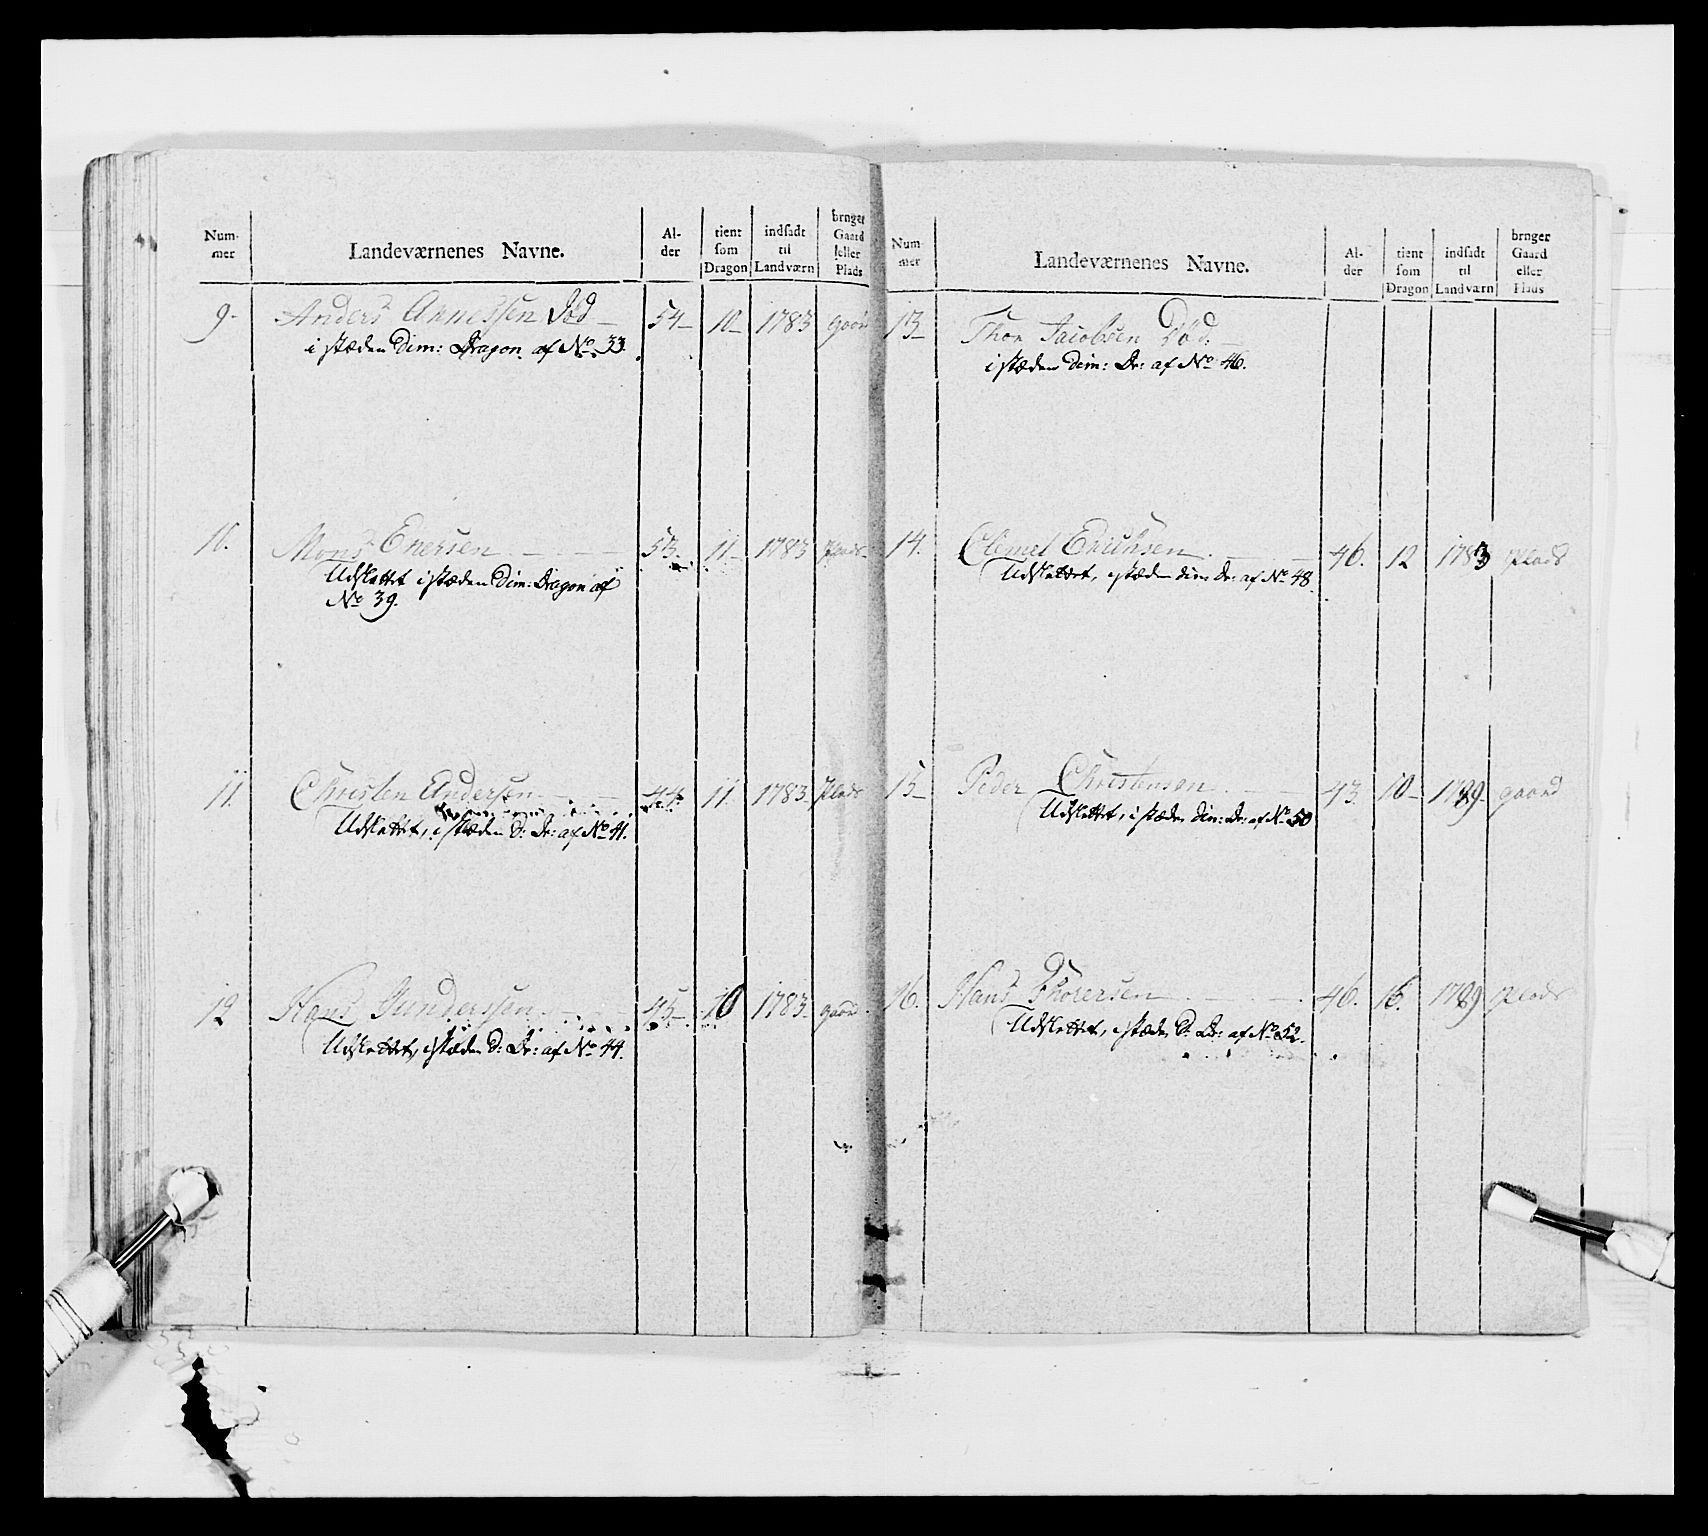 Num-
mer
Landeværnenes Navne.
Al-
der
tient
som
Dragon
indsadt
til
Landværn
bruger
Gaard
eller
Plads
9. Anders Annessen Död 54 10 1783 gaard
i stæden Dim: Dragon af No. 33.
10. Mons Enersen 53. 11 1783 Plads
Udslettet i stæden Dim: Dragon af
No 39.
11. Christen Andersen 44. 11. 1783 Plads
Udslettet, i stæden D: Dr: af No 41.
12 Hans Gunderssen 45 10 1783 gaard
Udslettet, i stæden D: Dr: af No 44.
Num-
mer
Landeværnenes Navne.
Al-
der
tient
som
Dragon
indsadt
til
Landværn
bruger
Gaard
eller
Plads
13 Thor Jacobsen Död.
i stæden Dim: Dr: af No 46.
14. Clemet Erichsen 46. 12 1783 Plads
Udslettet, i stæden dim Dr: af No 48
15 Peder Christensen 43. 10 1789 gaard
Udslettet, i stæden Dim: Dr: af No 50
16. Hans Thorersen 46. 16. 1789 Plads
Udslettet, i stæden D: Dr: af No 52.